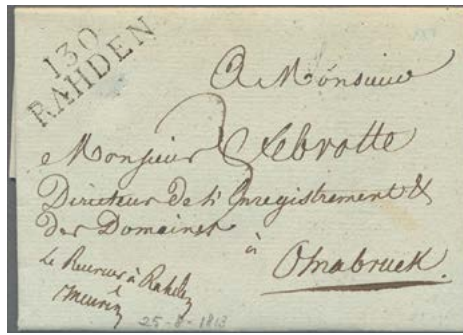 130
RAHDEN
A Monsieur
Monsieur Lebrotte
Directeur de l'Enregistrement &
des Domaines
à
Osnabruck.
Le Receveur à Rahden
25-8-1813